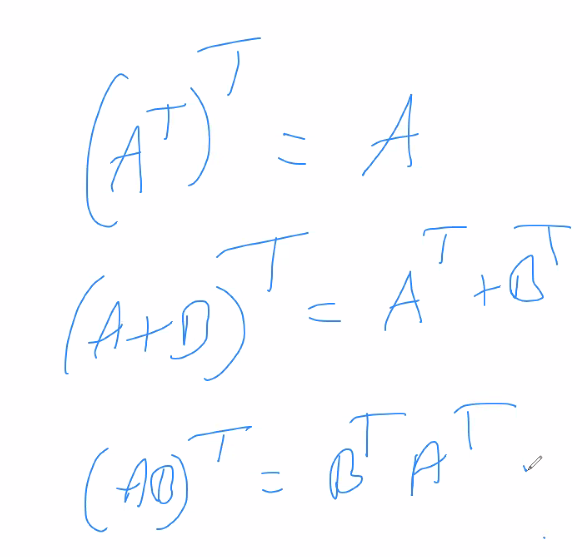 (Aᵀ)ᵀ = A
(A+B)ᵀ = Aᵀ + Bᵀ
(AB)ᵀ = Bᵀ Aᵀ .